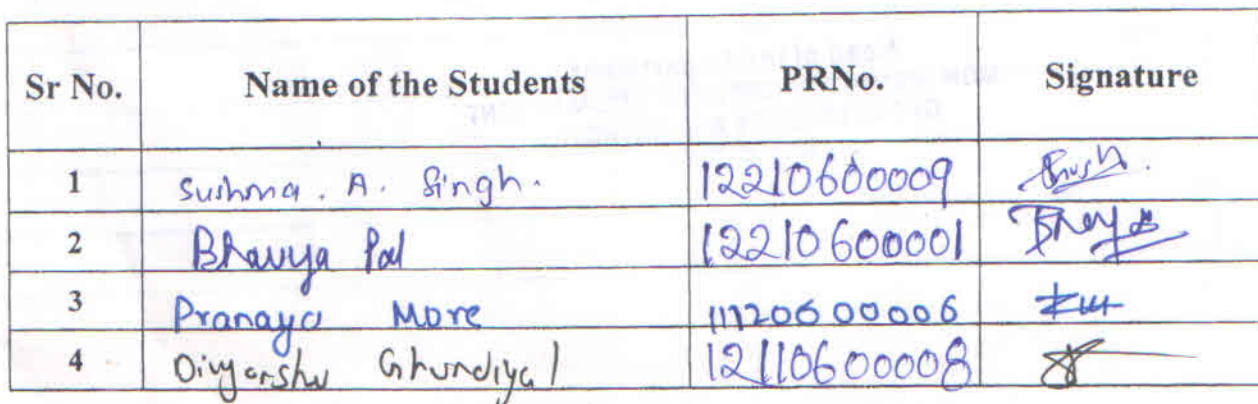 Sr No. Name of the Students PRNo. Signature
1 Sushma. A. Singh. 12210600009
2 Bhavya Pal 12210600001
3 Pranaya More 11120600006
4 Divyanshu Ghundiyal 12110600008